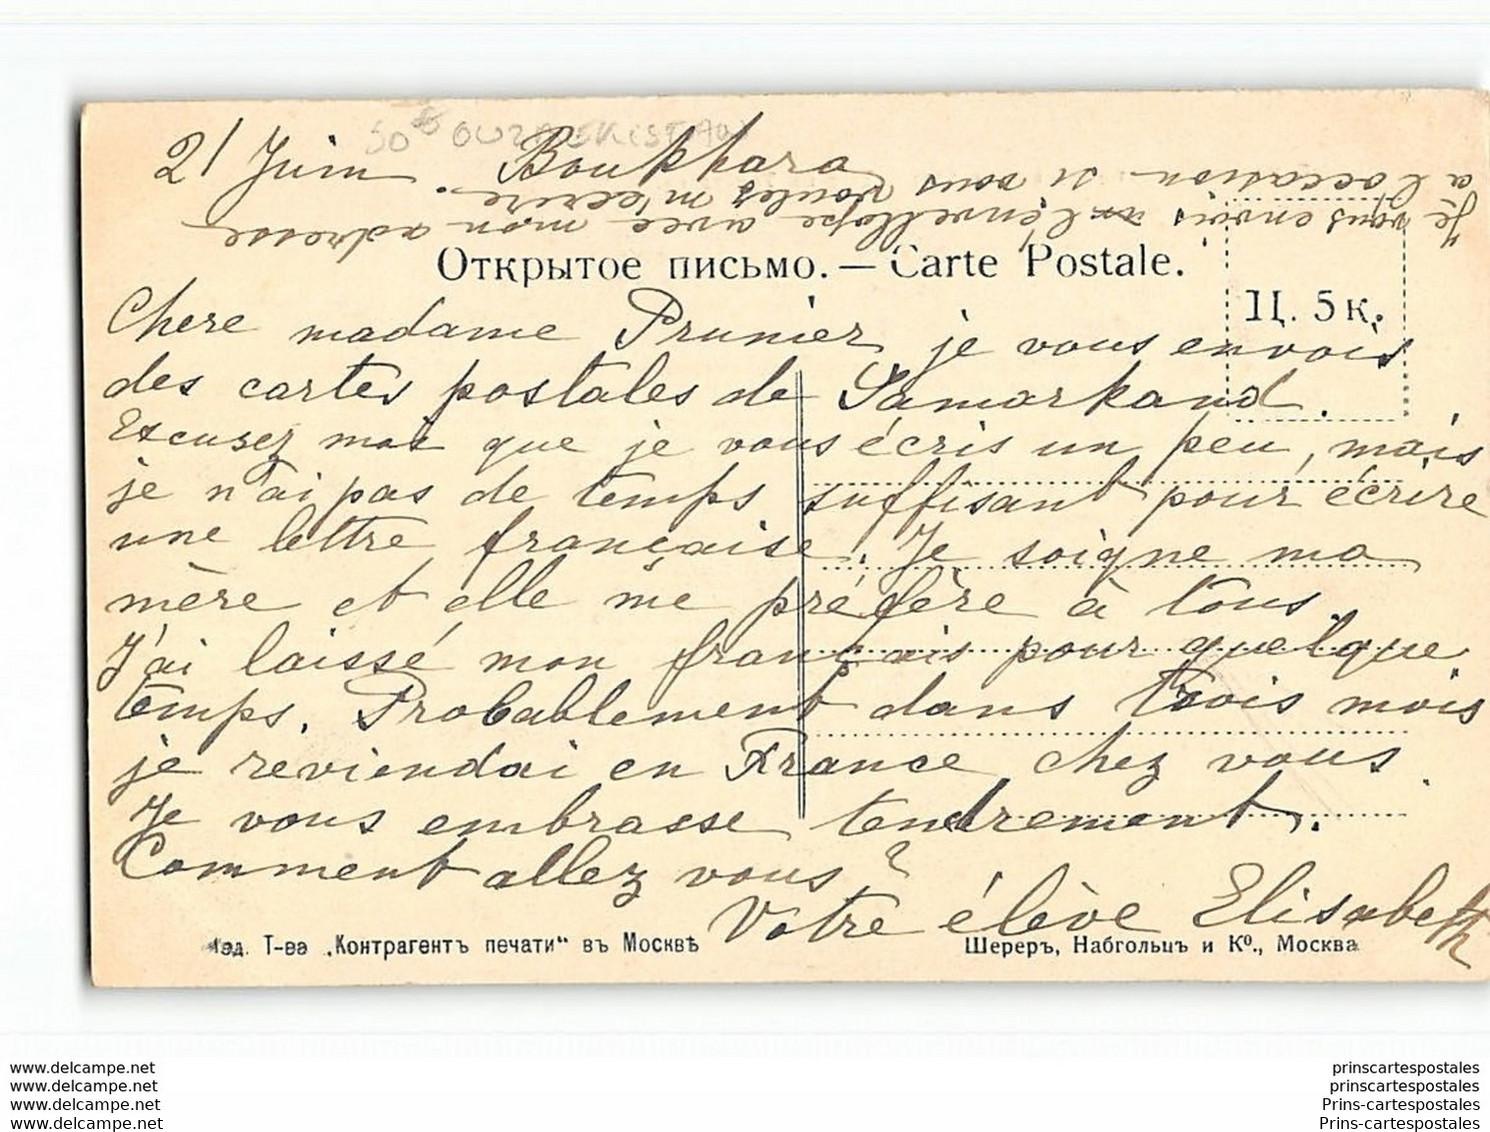 50 OUZBEKISTAN
21 Juin Boukhara
Je vous envois l'enveloppe avec mon adresse
à l'occasion si vous voulez m'écrire.
Открытое письмо. — Carte Postale.
Ц. 5 к.
Chere madame Prunier je vous envois
des cartes postales de Samarkand.
Excusez moi que je vous écris un peu, mais
je n'ai pas de temps suffisant pour écrire
une lettre française. Je soigne ma
mère et elle me préfère à tous.
J'ai laissé mon français pour quelque
temps. Probablement dans trois mois
je reviendai en France chez vous.
Je vous embrasse tendrement.
Comment allez vous?
Votre élève Elisabeth
Изд. Т-ва „Контрагентъ печати“ въ Москвѣ
Шереръ, Набгольцъ и Ко., Москва
www.delcampe.net
www.delcampe.net
www.delcampe.net
www.delcampe.net
prinscartespostales
prinscartespostales
Prins-cartespostales
Prins-cartespostales